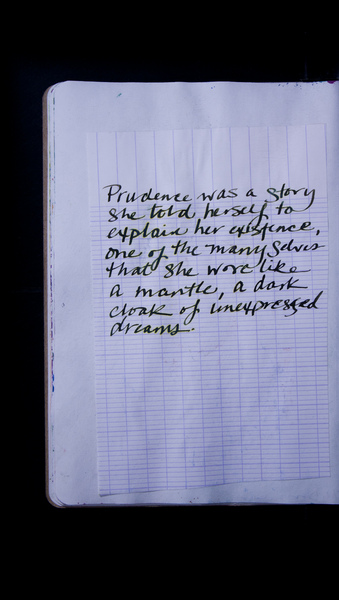 Prudence was a story
she told herself to
explain her existence,
one of the many selves
that she wore like
a mantle, a dark
cloak of unexpressed
dreams.